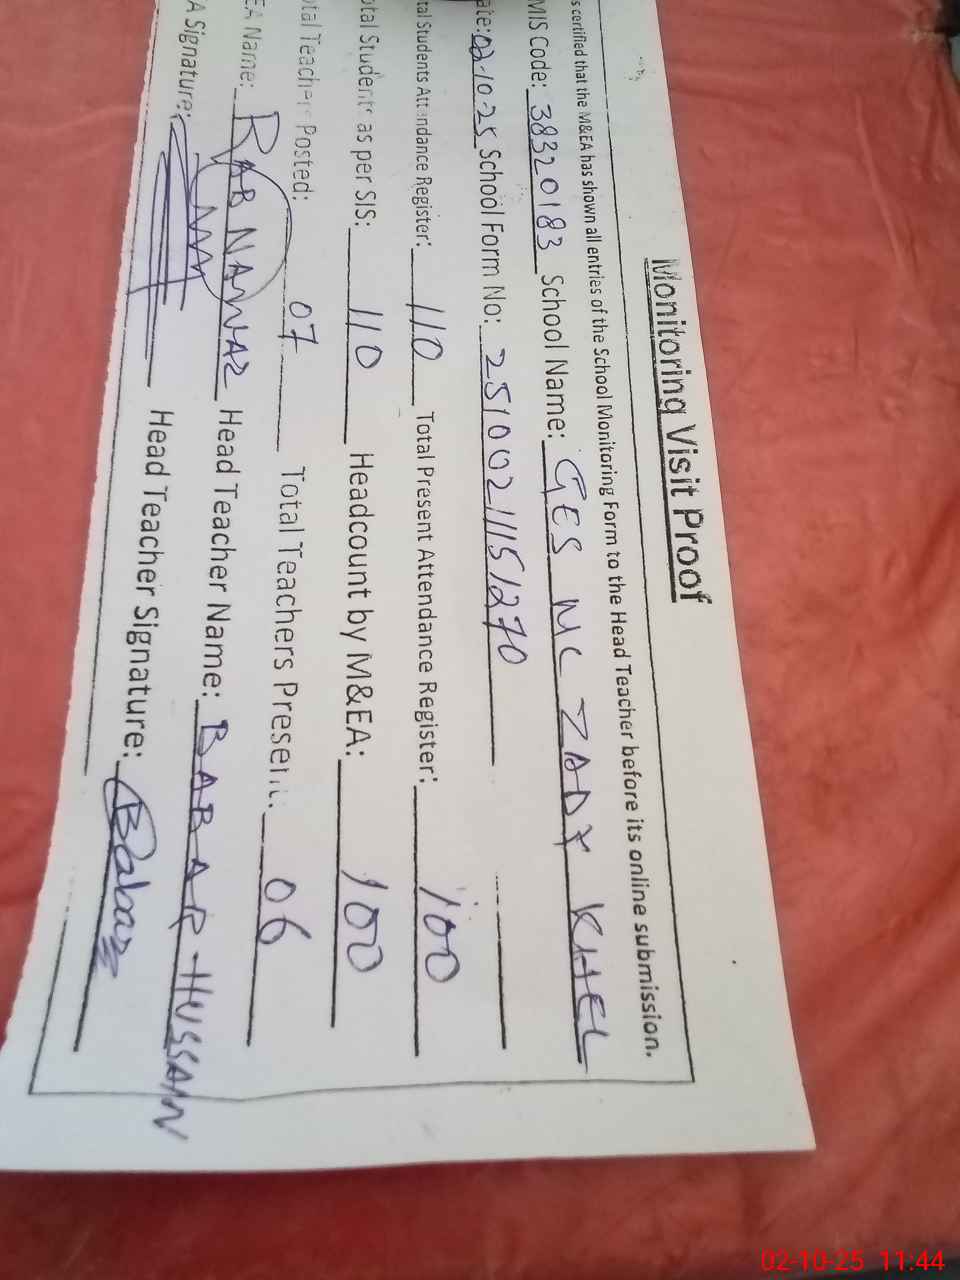 Monitoring Visit Proof
s certified that the M&EA has shown all entries of the School Monitoring Form to the Head Teacher before its online submission.
MIS Code: 38320183 School Name: GES MC ZADY KHEL
ate: 02-10-25 School Form No: 25100211151270
tal Students Attendance Register: 110 Total Present Attendance Register: 100
otal Students as per SIS: 110 Headcount by M&EA: 100
otal Teachers Posted: 07 Total Teachers Present: 06
EA Name: RAB NAWAZ Head Teacher Name: BABAR HUSSAIN
A Signature: Head Teacher Signature: Babar
02-10-25 11:44